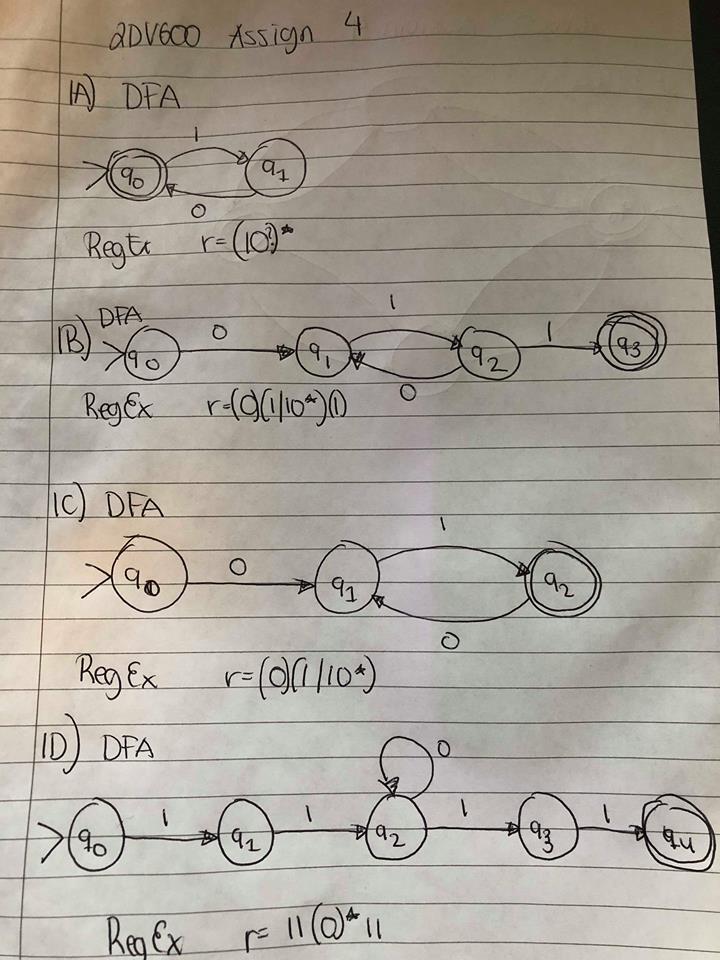 2DV600 Assign 4
1A) DFA
1
q0 q1
0
RegEx r=(10?)*
1
1B) DFA
0 1
q0 q1 q2 q3
0
RegEx r=(0)(1/10*)(1)
1C) DFA
1
0
q0 q1 q2
0
RegEx r=(0)(1/10*)
1D) DFA
0
1 1 1 1
q0 q1 q2 q3 q4
RegEx r= 11(0)*11